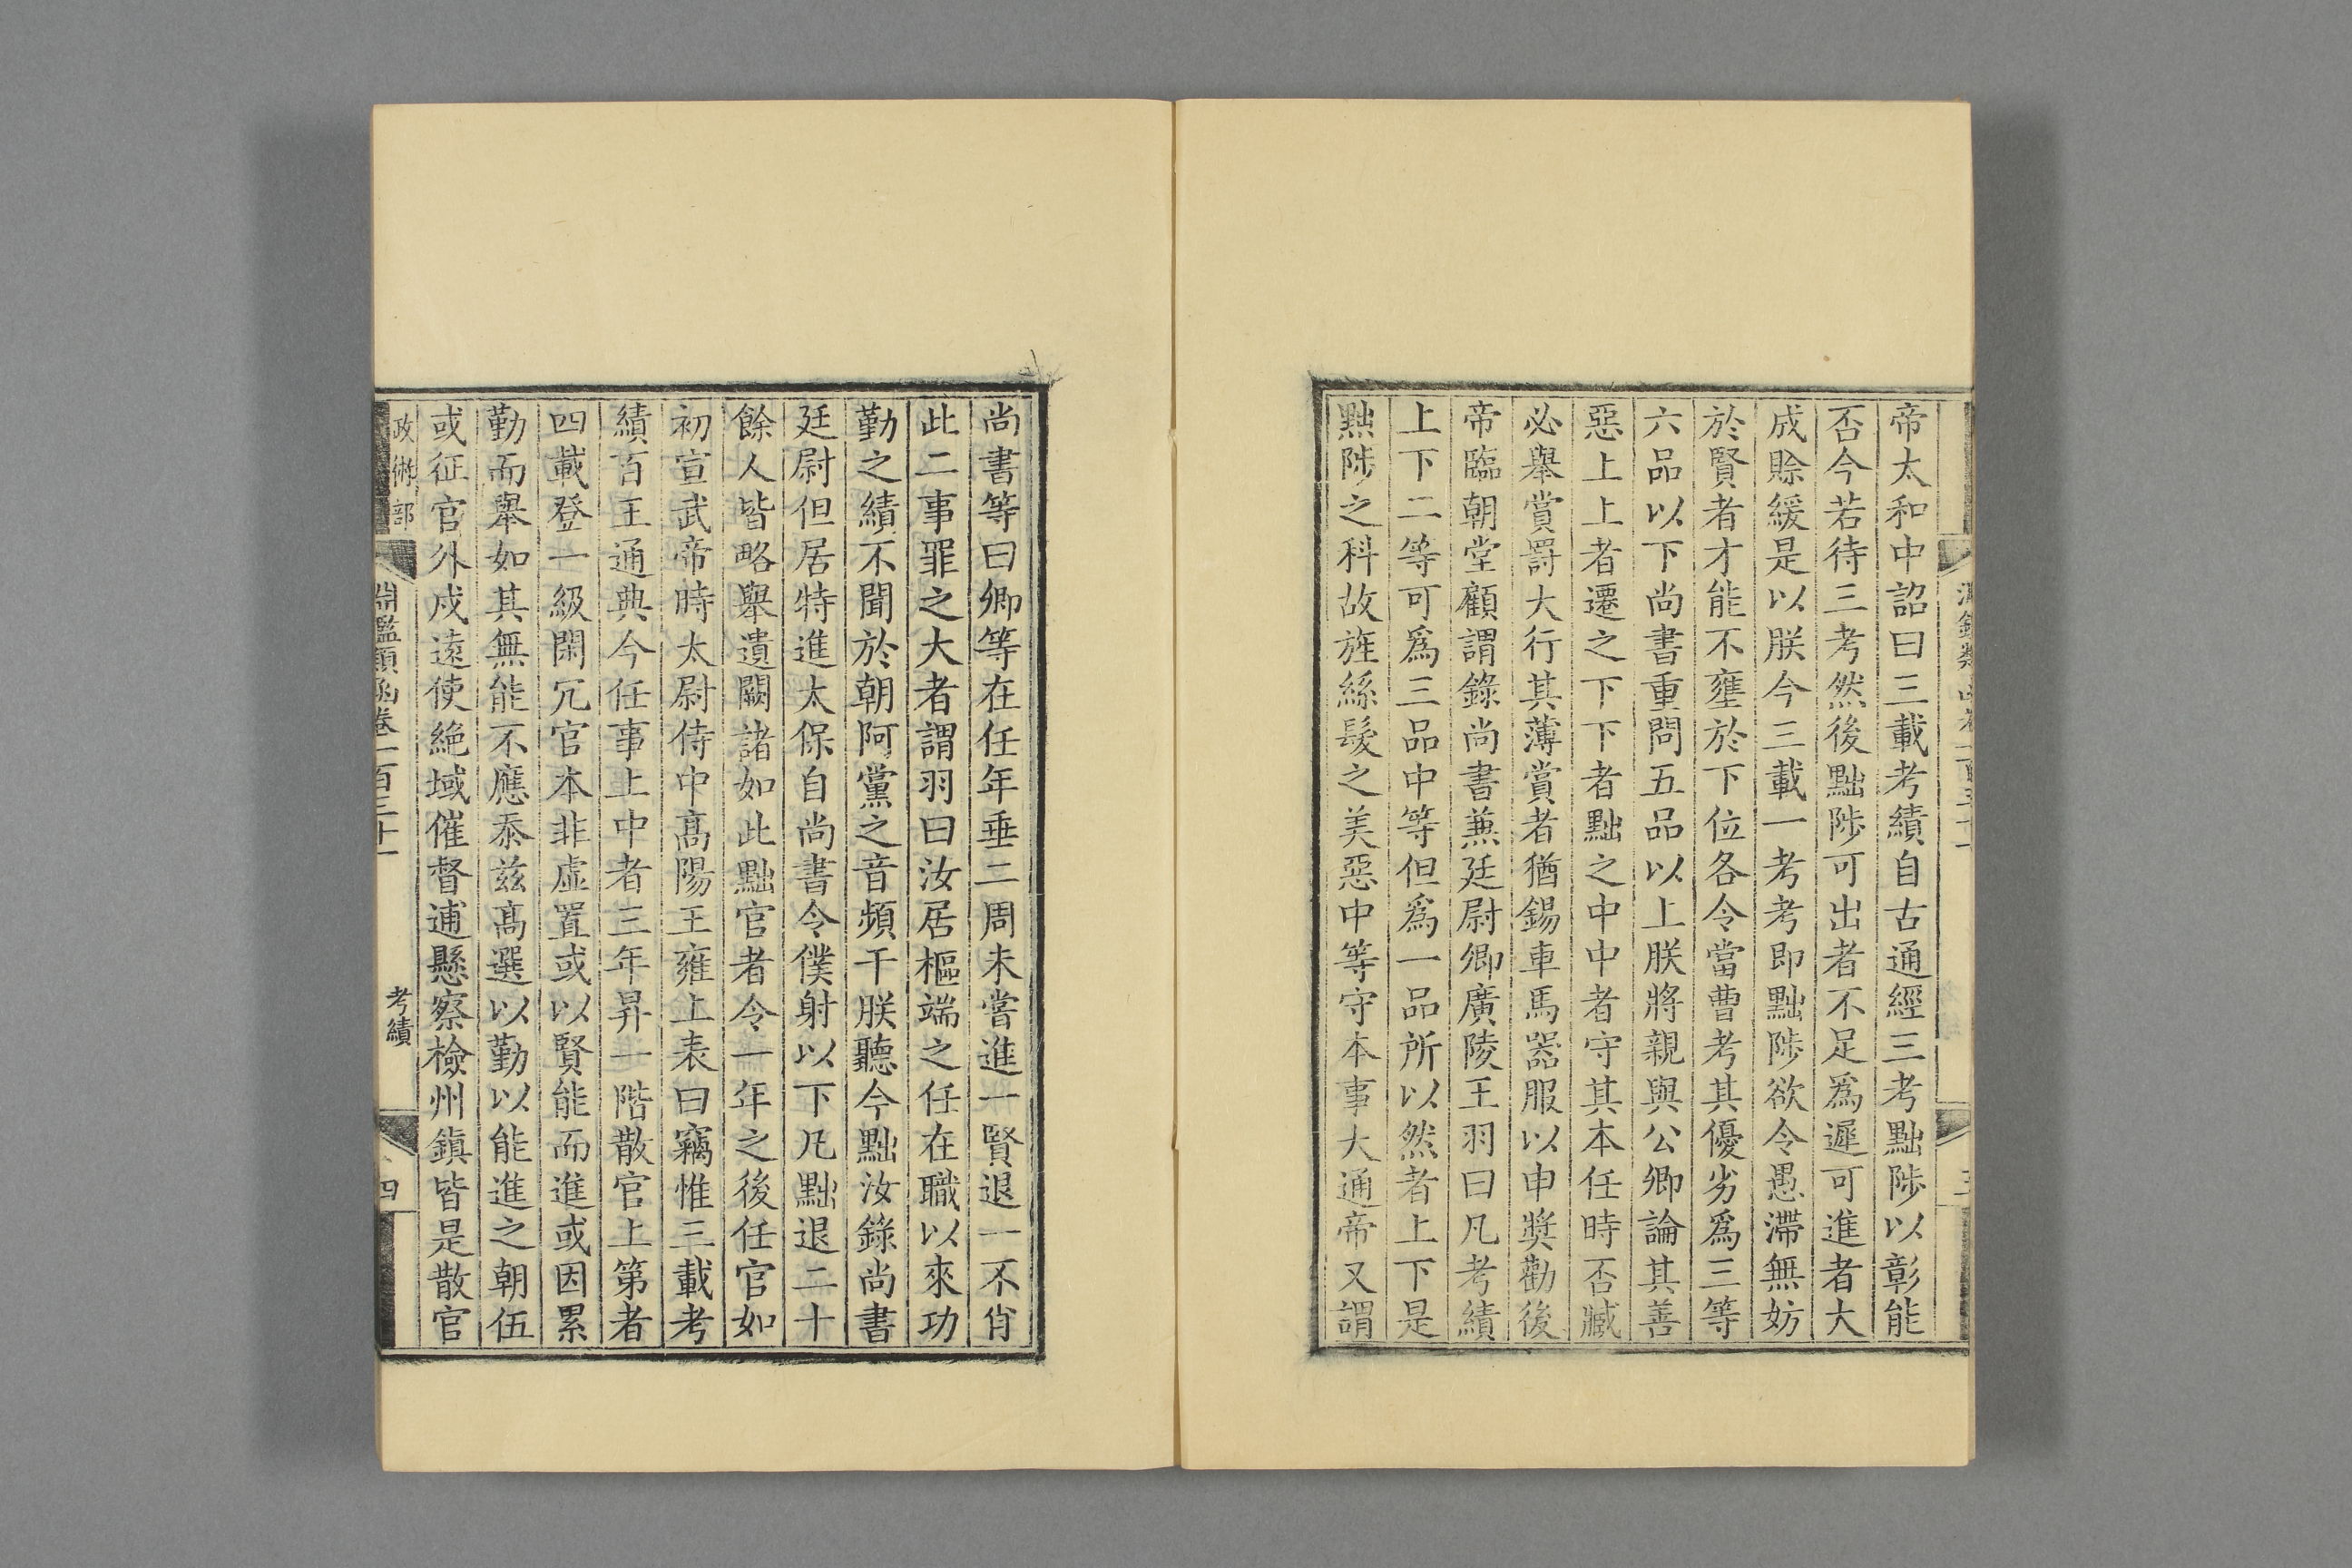 帝太和中詔曰三載考績自古通經三考黜陟以彰能
否今若待三考然後黜陟可出者不足爲遲可進者大
成賒緩是以朕今三載一考考即黜陟欲令愚滯無妨
於賢者才能不壅於下位各令當曹考其優劣爲三等
六品以下尚書重問五品以上朕將親與公卿論其善
惡上上者遷之下下者黜之中中者守其本任時否臧
必舉賞罰大行其薄賞者猶錫車馬器服以申奬勸後
帝臨朝堂顧謂錄尚書兼廷尉卿廣陵王羽曰凡考績
上下二等可爲三品中等但爲一品所以然者上下是
黜陟之科故旌絲髮之美惡中等守本事大通帝又謂
尚書等曰卿等在任年垂二周未嘗進一賢退一不肖
此二事罪之大者謂羽曰汝居樞端之任在職以來功
勤之績不聞於朝阿黨之音頻干朕聽今黜汝錄尚書
廷尉但居特進太保自尚書令僕射以下凡黜退二十
餘人皆略舉遺闕諸如此黜官者令一年之後任官如
初宣武帝時太尉侍中高陽王雍上表曰竊惟三載考
績百王通典今任事上中者三年昇一階散官上第者
四載登一級閑冗官本非虛置或以賢能而進或因累
勤而舉如其無能不應忝兹高選以勤以能進之朝伍
或征官外戍遠使絶域催督逋懸察檢州鎮皆是散官
政術部 淵鑑類函卷一百三十一 考績 四